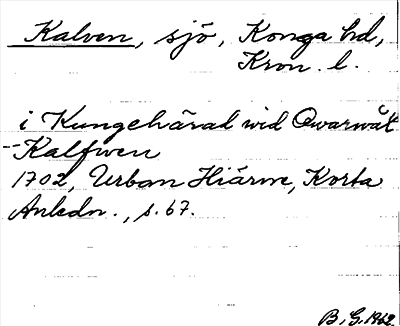 Kalven, sjö, Konga hd,
Kron. l.
i Kungehärad wid Qwarwåt
--Kalfwen
1702, Urban Hiärne, Korta
Anledn., s. 67.
B. G. 1962